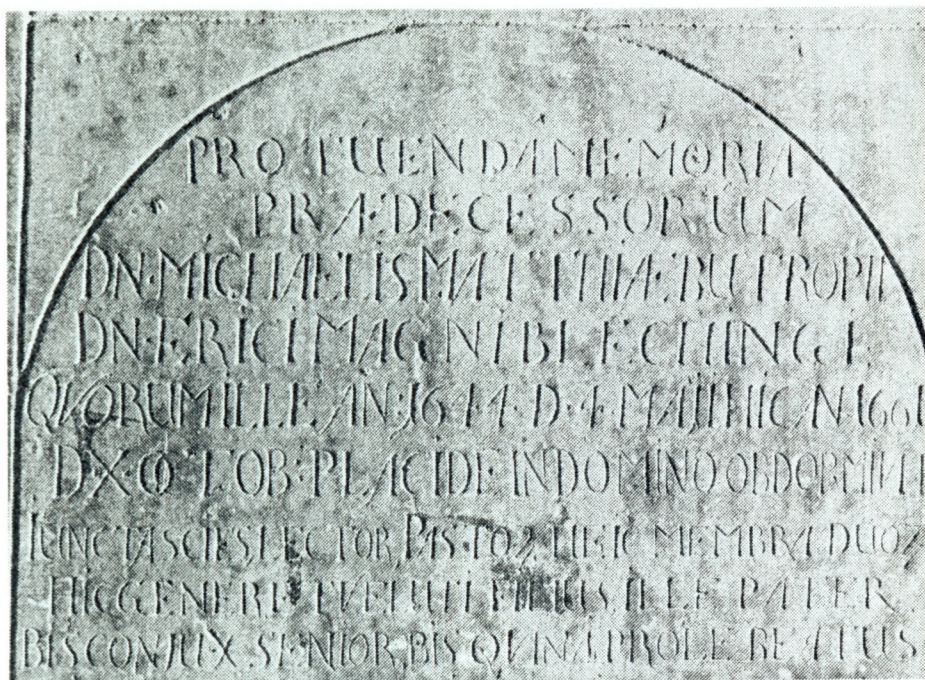 PRO TUENDA MEMORIA
PRÆDECESSORUM
DN·MICHAELIS MATTHIÆ BUTROPII
DN·ERICI MAGNI BLECHINGI
QUORUM ILLE AN·1644·D·4·MAIJ HIC AN·1661
D X OCTOB·PLACIDE IN DOMINO OBDORMIVIT
IUNCTA SCIES LECTOR PASTOR HEIC MEMBRA DUOR
HIC GENER EST VELUTI FILIUS ILLE PATER
BIS CONJUX SENIOR, BIS QVINA PROLE BEATUS